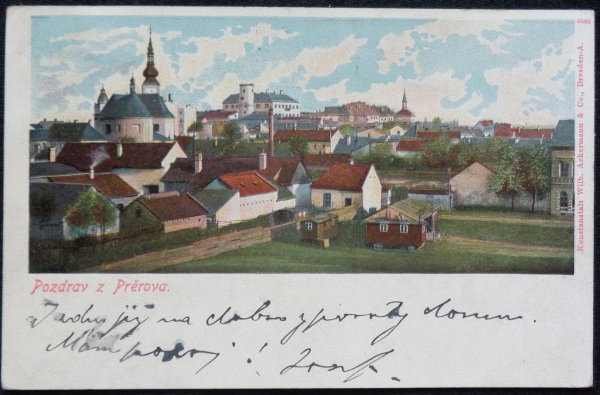 6583
Kunstanstalt Wilh. Ackermann & Co., Dresden-A.
Pozdrav z Prěrova.
Jedu již na dobro z porady domu.
Mám pokoj! Josef